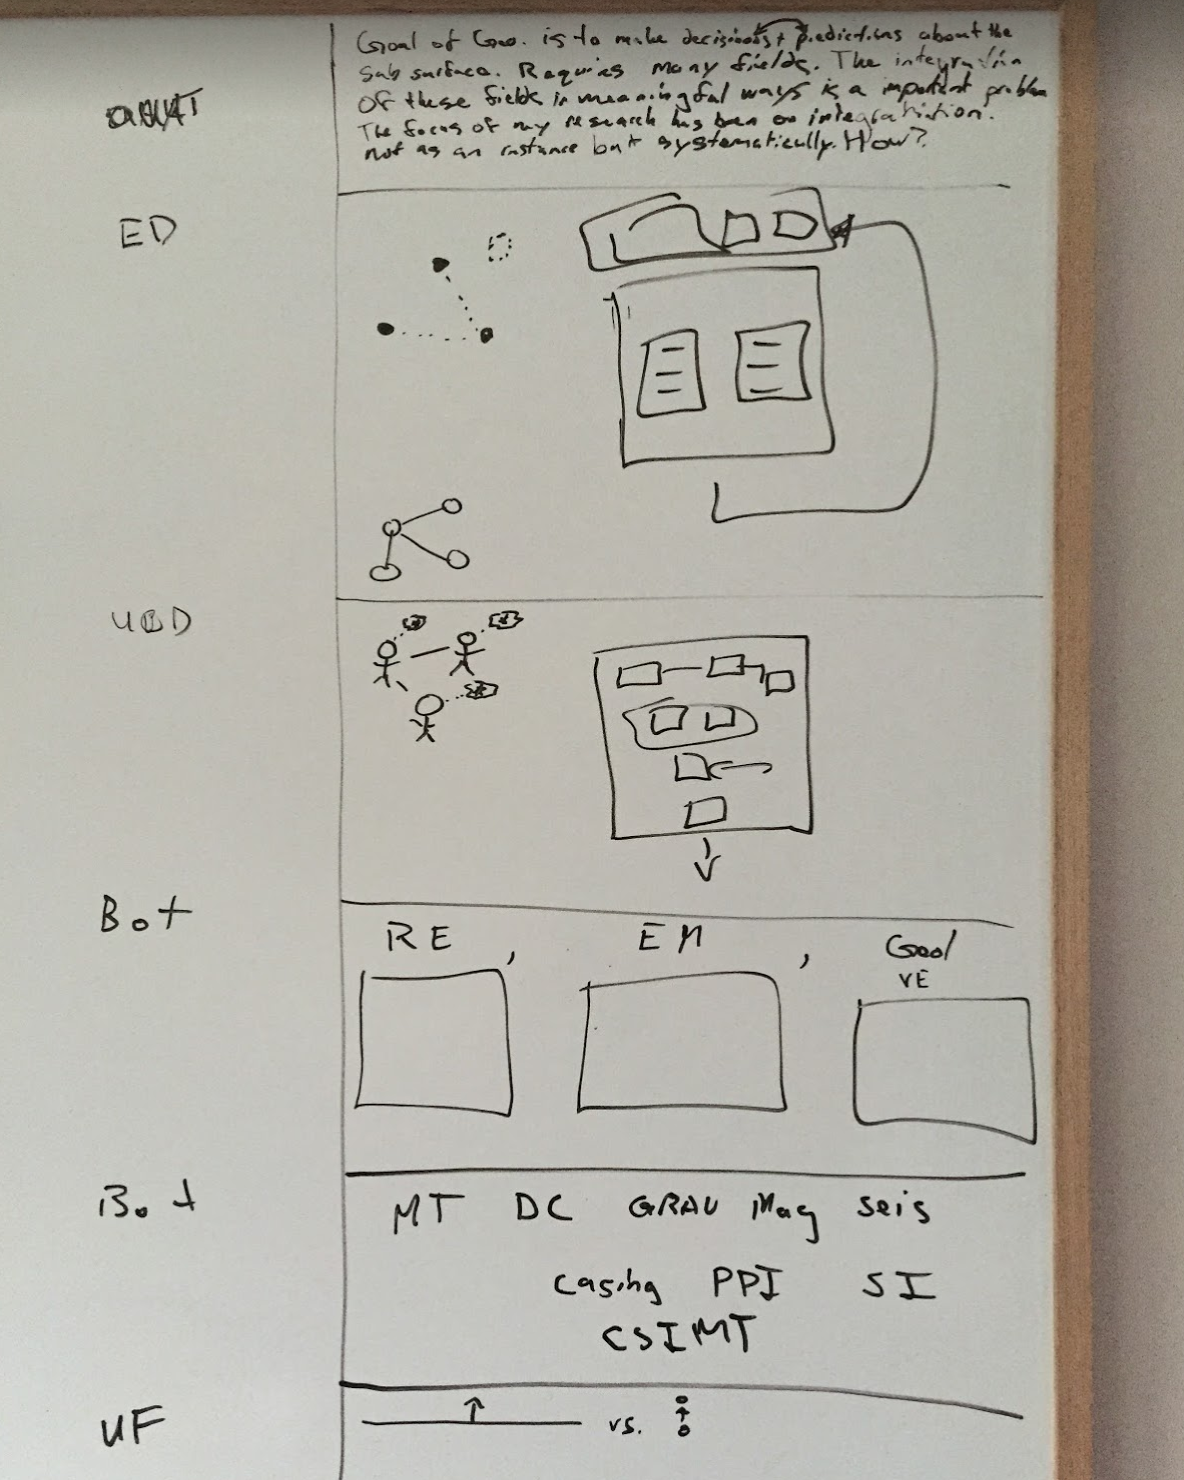 Goal of Geo. is to make decisions + predictions about the
subsurface. Requires many fields. The integration
of these fields in meaningful ways is a important problem
The focus of my research has been on integration.
not as an instance but systematically. How?
ED
UBD
Bot
RE , EM , Geol
VE
Bot
MT DC GRAV Mag seis
Casing PPI SI
CSIMT
UF
vs.